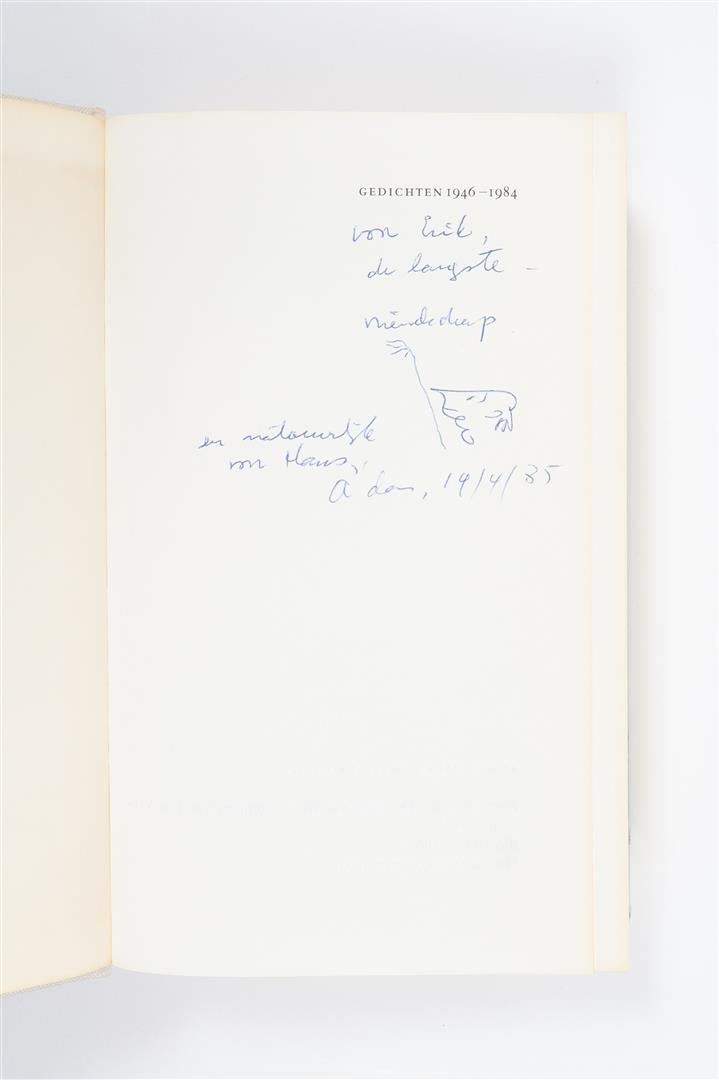 GEDICHTEN 1946–1984
von Erik,
de langste –
vriendschap
en natuurlijk
von Hans,
A'dam, 19/4/85